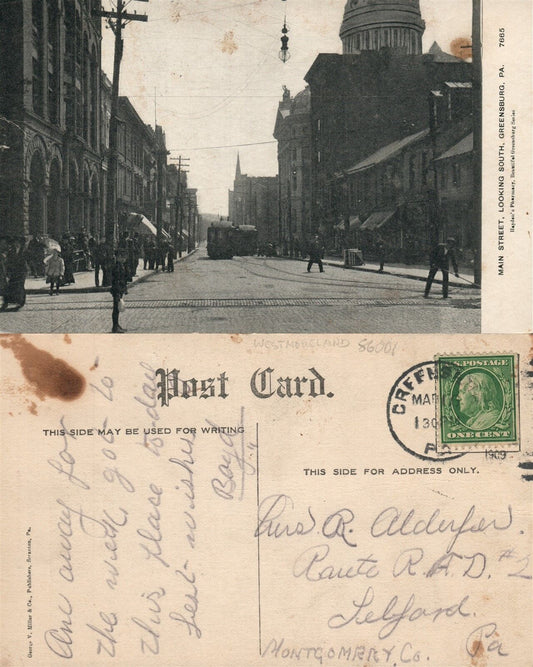 MAIN STREET, LOOKING SOUTH, GREENSBURG, PA. 7665
Haydn's Pharmacy, Beautiful Greensburg Series
WESTMORELAND S6001
Post Card.
THIS SIDE MAY BE USED FOR WRITING
THIS SIDE FOR ADDRESS ONLY.
George V. Millar & Co., Publishers, Scranton, Pa.
Am away for
the week got to
this place to day
Best wishes
Boyd
GREENSB
MAR
130
PA
1909
U.S. POSTAGE
ONE CENT
R. Alderfer.
Route R.F.D. #2
Telford.
MONTGOMERY CO. Pa